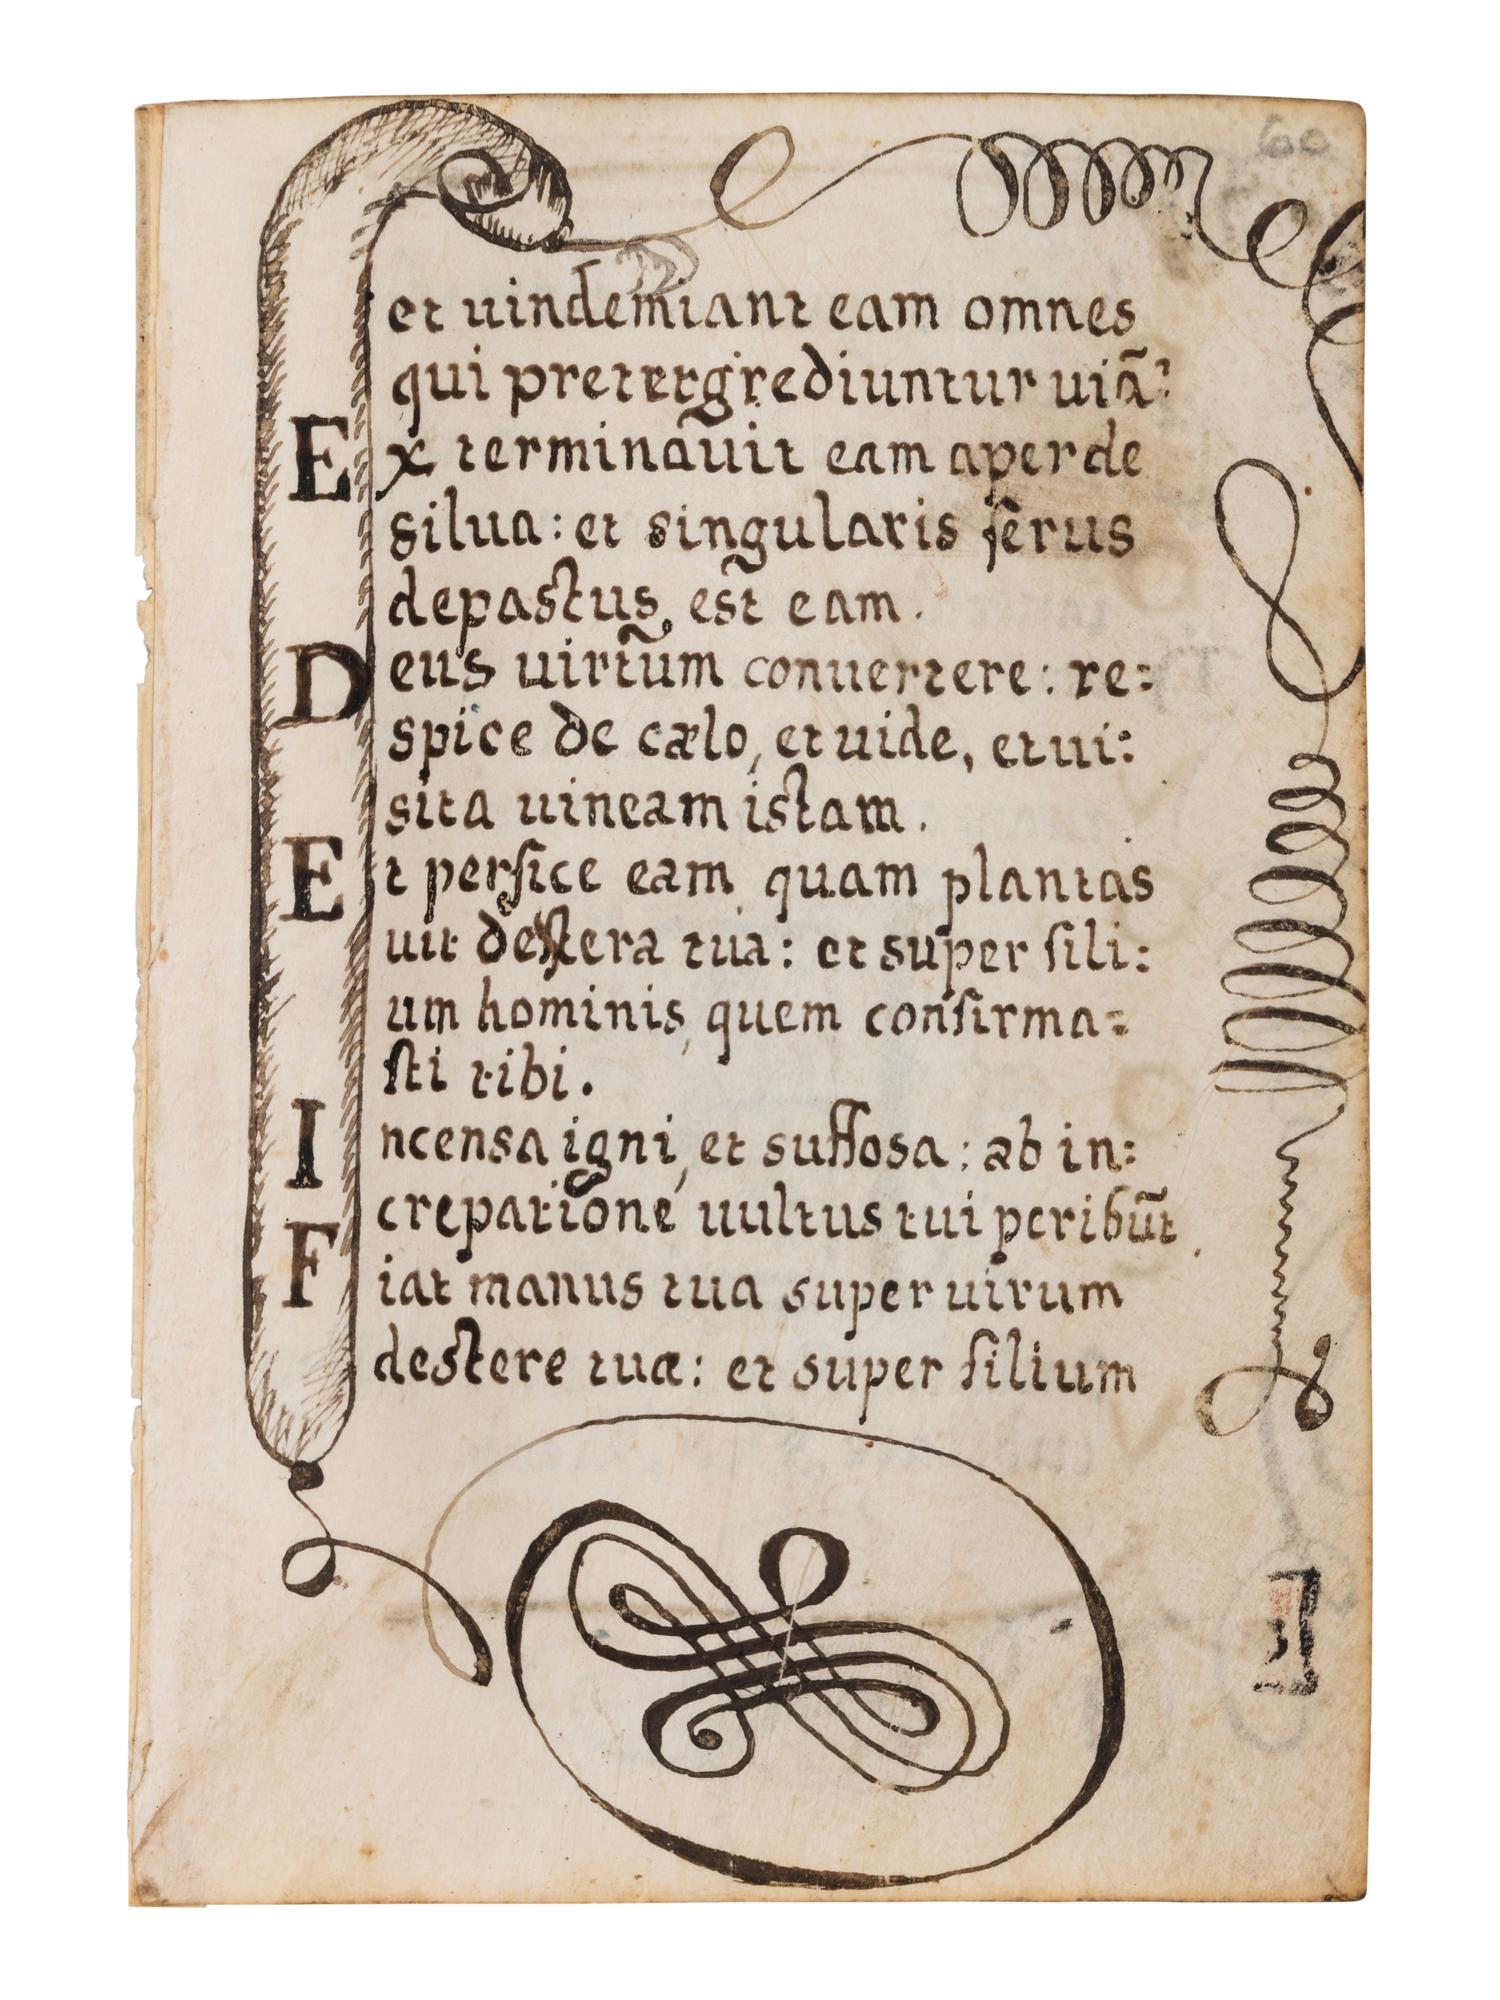 60
et uindemiant eam omnes
qui pretergrediuntur uiã:
Ex terminauit eam aper de
silua: et singularis ferus
depastus est eam.
Deus uirtũm conuertere: re:
spice de cælo, et uide, et ui:
sita uineam istam.
Et perfice eam quam plantas
uit destera tua: et super fili:
um hominis, quem confirma:
sti tibi.
Incensa igni, et suffosa: ab in:
crepatione uultus tui peribũt.
Fiat manus tua super uirum
destere tuæ: et super filium